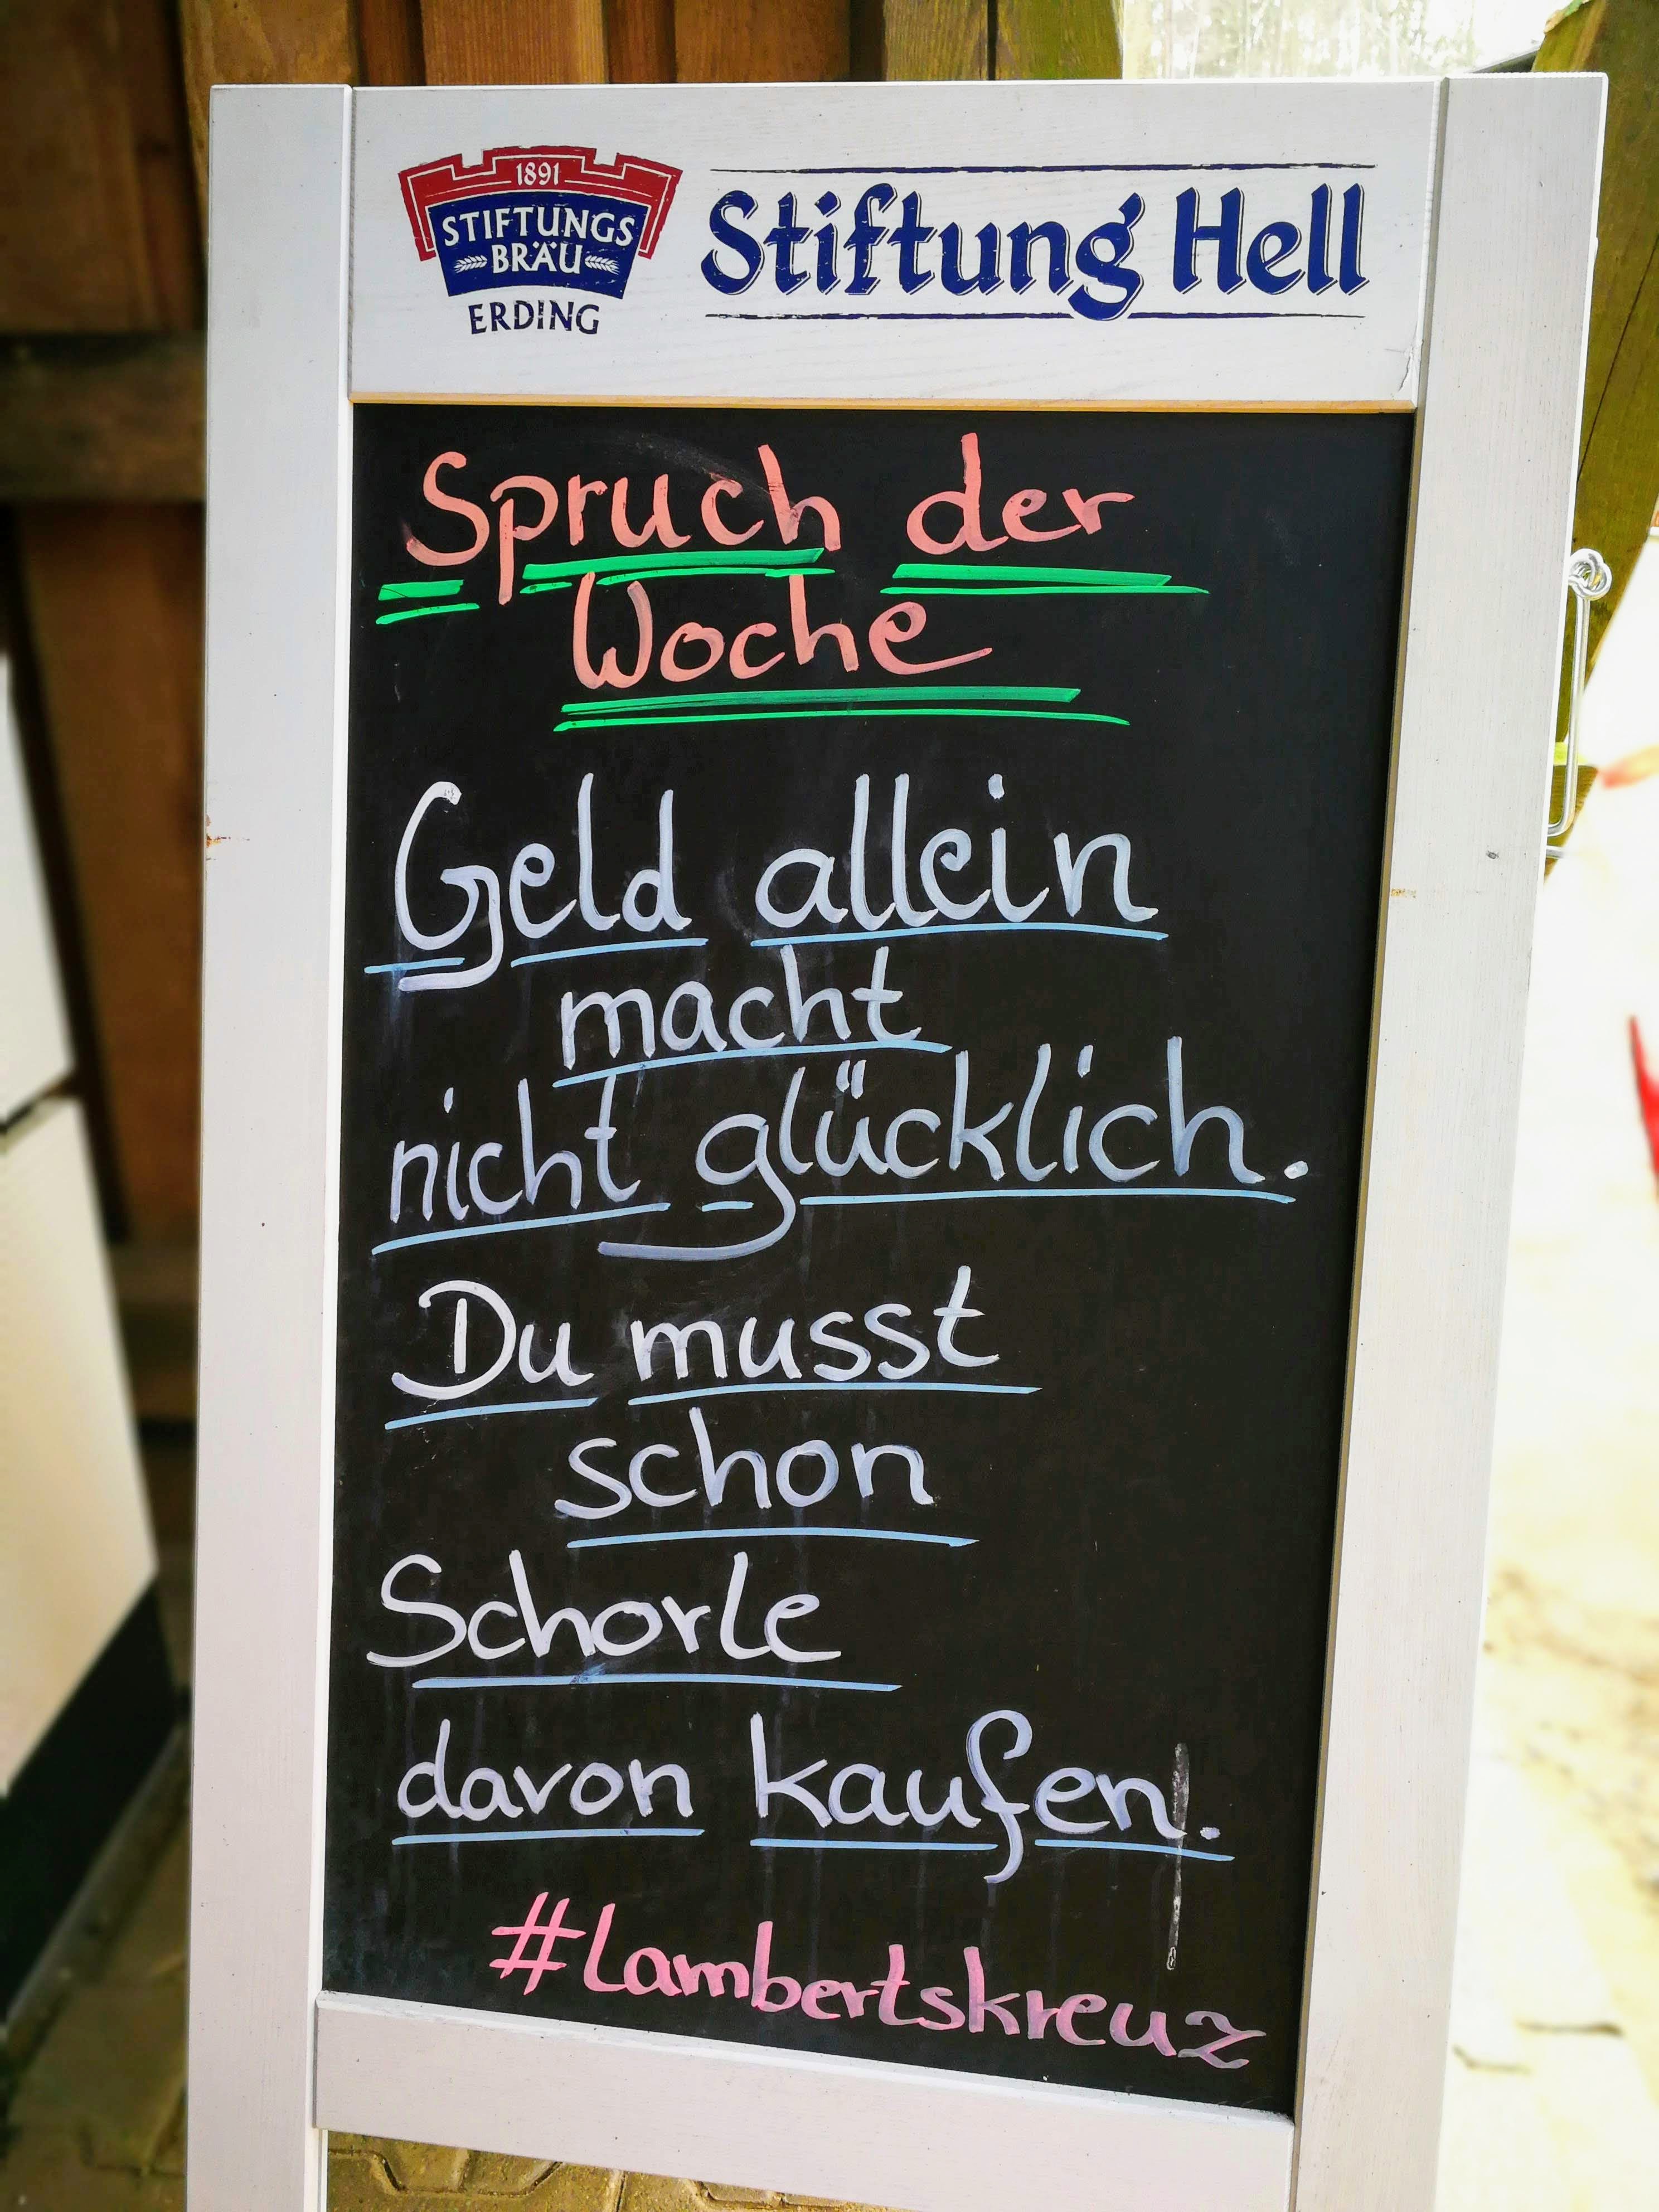 1891
STIFTUNGS
BRÄU
ERDING
Stiftung Hell
Spruch der
Woche
Geld allein
macht
nicht glücklich.
Du musst
schon
Schorle
davon kaufen.
#Lambertskreuz